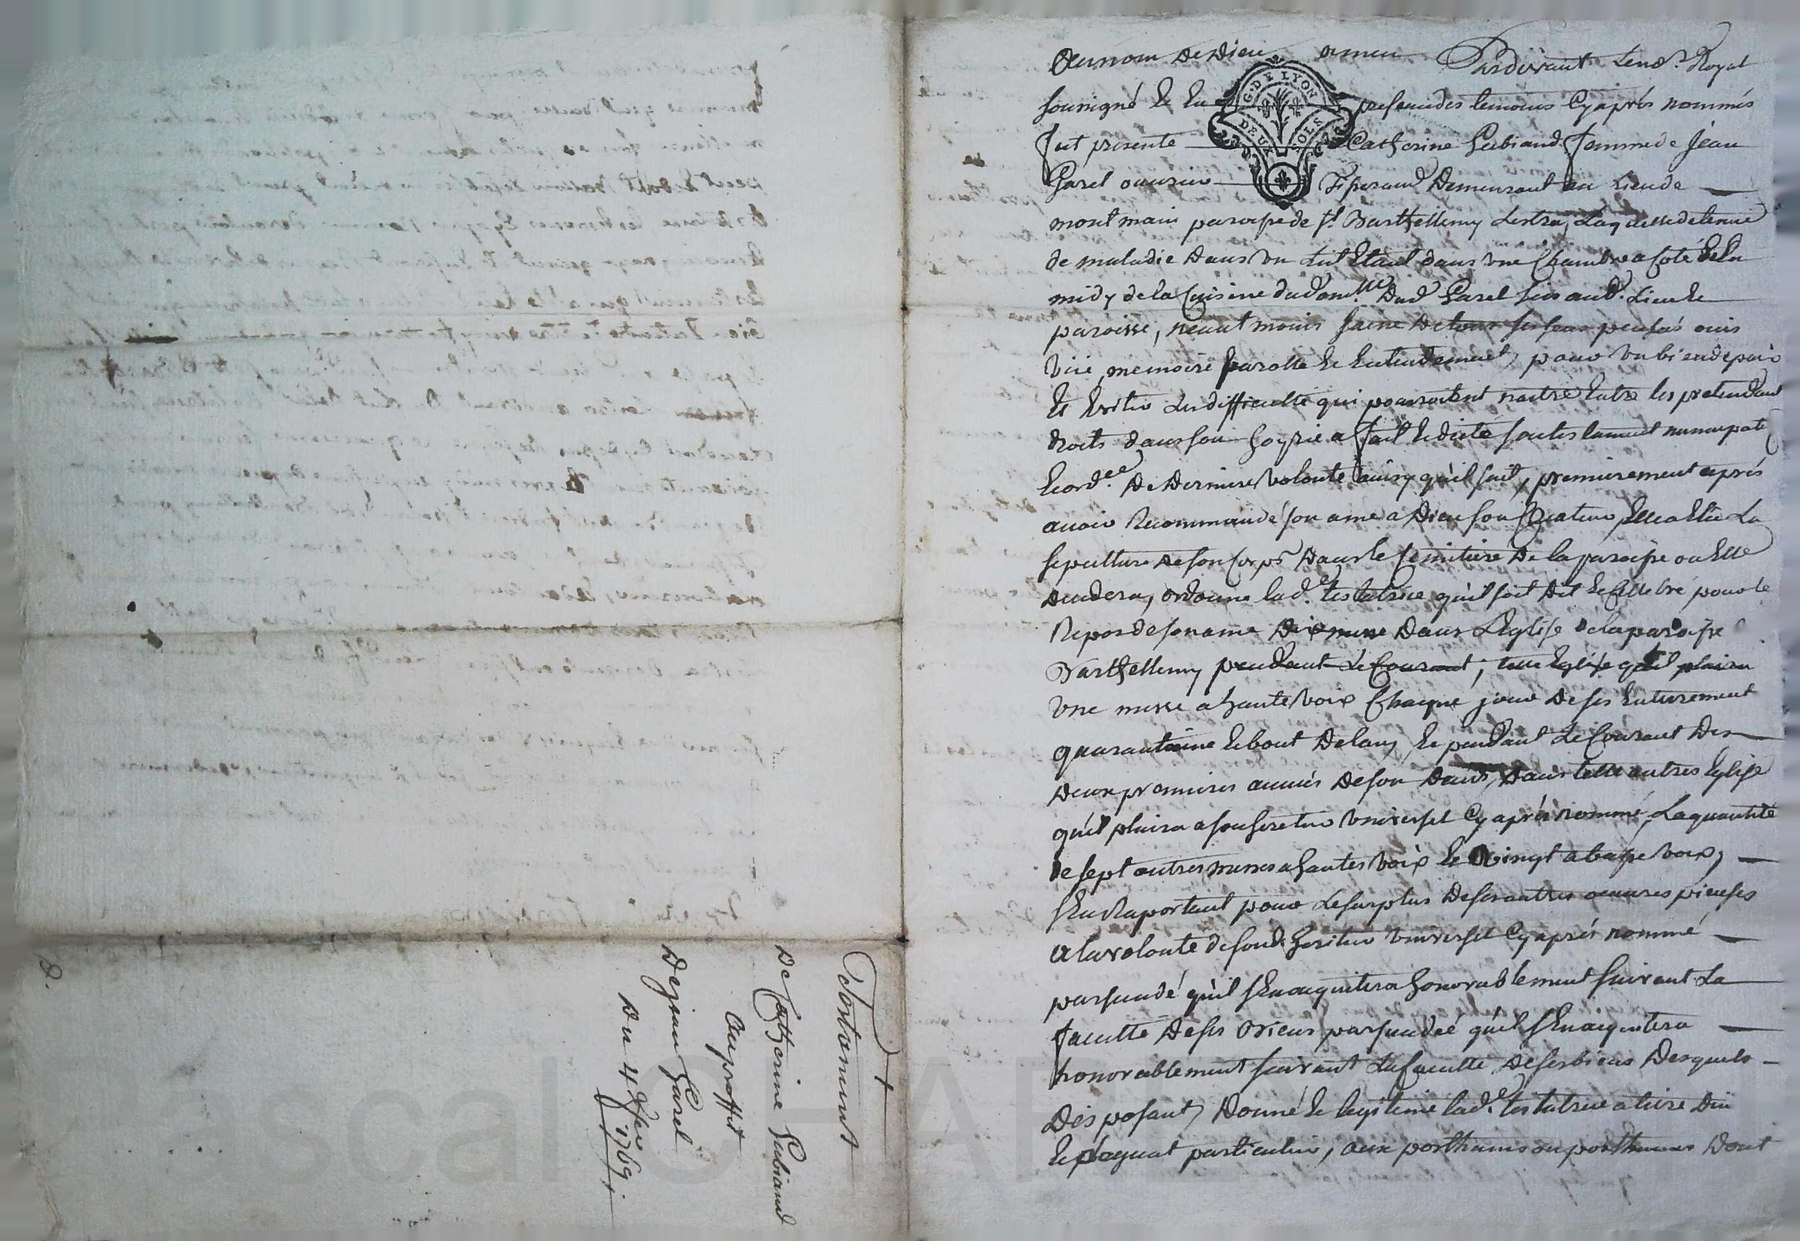 Testament
De Catherine Gubiand
Au proffit
De jean Garel
Du 4 1769
Au nom De Dieu amen Pardevant Le no.re Royal
soussigné et En presence des temoins Cy après nommés
fut presente Catherine Gubiand femme de Jean
Garel ouvrier Demeurant au Lieu de
montmain paroisse de st. Barthellemy Lestra, Laquelle detenue
de maladie Dans un Lit Etant dans une Chambre a Coté de la
midy de la Cuisine du dom.lle Dud. Garel sis aud. Lieu et
paroisse, neant moins saine De tous ses sens pensés ouis
vüe, memoire parolle et Entendement, pour un bien de paix
et Eviter Les difficultés qui pourroient naitre Entre les pretendant
droits dans son hoyrie a fait et dicté son testament nuncupatif
et ord.ce De Derniere volonté ainsy qu'il suit, premierement après
avoir Recommandé son ame a Dieu son Createur Elle a Elu La
sepulture de son Corps Dans le Cimitiere De la paroisse ou Elle
Decedera, ordonne lad.e testatrice qu'il soit Dit et Cellebré pour le
Repos de son ame Dans L'Eglise de la paroisse
Barthellemy pendant Le Courant, telle Eglise qu'il plaira
une messe a haute voix Chaque jour De ses Enterrement
quarantaine et bout De l'an, et pendant Le Courant Des
Deux premieres années De son Deces, Dans telle autres Eglise
qu'il plaira a son heretier universel Cy après nommé, La quantité
de sept autres messes a hautes voix et vingt a basse voix,
s'En Raportant pour Le surplus De ses autres œuvres pieuses
a la volonté de sond. heritier universel Cy après nommé
persuadé qu'il s'En aquitera honorablement suivant La
faculté De ses Biens persuadée qu'il s'En aquitera
honorablement suivant La faculté De ses biens Desquels
Disposant, Donne et legue lad.e testatrice a titre D'in
et legat particulier, aux posthumes ou posthumes Dont
G. DE LYON
DEUX SOLS